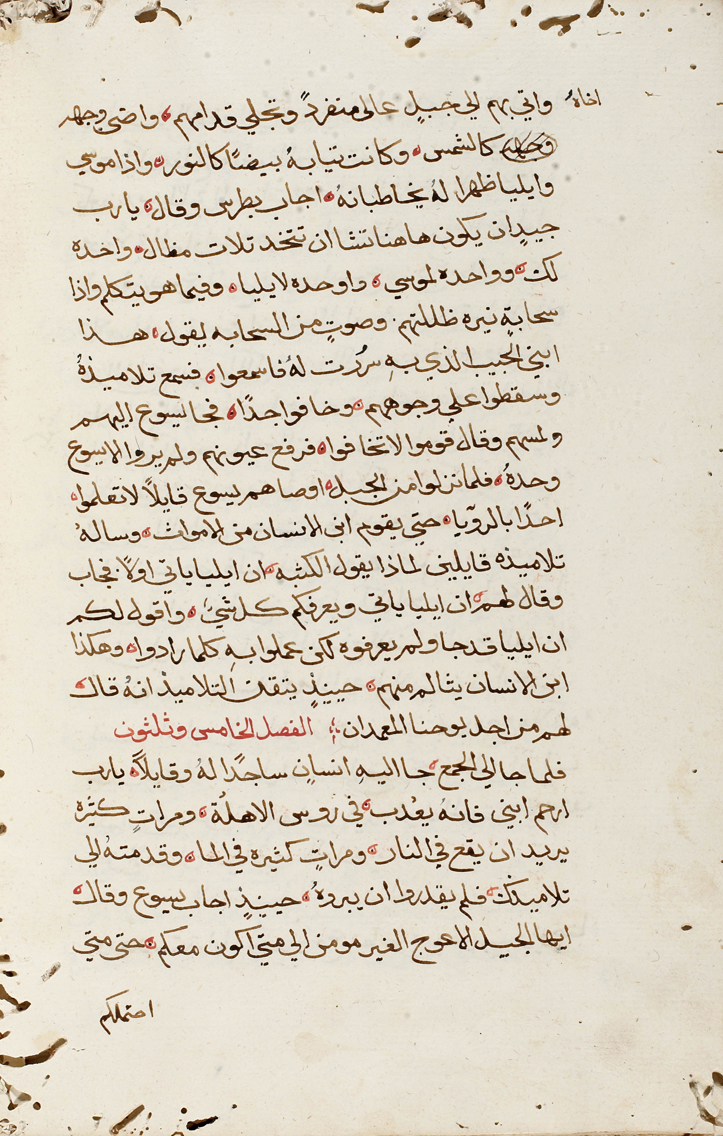 اخاهُ واتي بهم الي جبلٍ عالى منفردً وتجلي قدامهم واضي وجهه
كالشمس وكانت تيابهُ بيضًا كالنور واذا موسي
وايليا ظهرا لهُ يخاطبانهُ اجاب بطرس وقال يارب
جيدٍ ان يكون هاهنا تشا ان تتخد تلات مظال واحده
لك وواحده لموسي واوحده لايليا وفيما هو يتكلم واذا
سحابةٍ نيره ظللتهم وصوتٍ من السحابه يقول هذا
ابني الحبيب الذي بهِ سُررت لهُ فاسمعوا فسمع تلاميذهُ
وسقطوا علي وجوههم وخافوا جدًا فجا يسوع اليهم
ولمسهم وقال قوموا لا تخافوا فرفع عيونهم ولم يروا الا يسوع
وحدهُ فلما نزلوا من الجبل اوصاهم يسوع قايلًا لا تعلموا
احدًا بالرويا حتي يقوم ابن الانسان من الاموات وسالهُ
تلاميذه قايلين لماذا يقول الكتبه ان ايليا ياتي اولًا فجاب
وقال لهم ان ايليا ياتي ويعرفكم كل شيً واقول لكم
ان ايليا قد جا ولم يعرفوه لكن عملوا بهِ كلما رادوا وهكذا
ابن الانسان يتالم منهم حينيذٍ يتقن التلاميذ انهُ قال
لهم من اجل يوحنا المعمدان الفصل الخامس وثلثون
فلما جا الي الجمع جا اليهِ انسانٍ ساجدًا لهُ وقايلاً يارب
ارحم ابني فانهُ يعُدب في روس الاهلّة ومراتٍ كثيره
يريد ان يقع في النار ومراتٍ كثيره في الما وقدمتهُ الي
تلاميدك فلم يقدروا ان يبروهُ حينيذٍ اجاب يسوع وقال
ايها الجيل الاعوج الغير مومن الي متي اكون معكم حتى متي
احتملكم